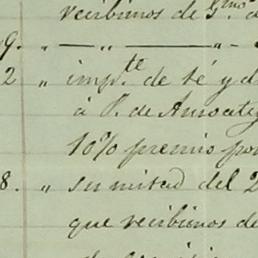 recibimos de Gmo
9. " — " — " -
2 " impte de té y d
á P. de Amocateg
10% premio por
8. " su mitad del 2
que recibimos de